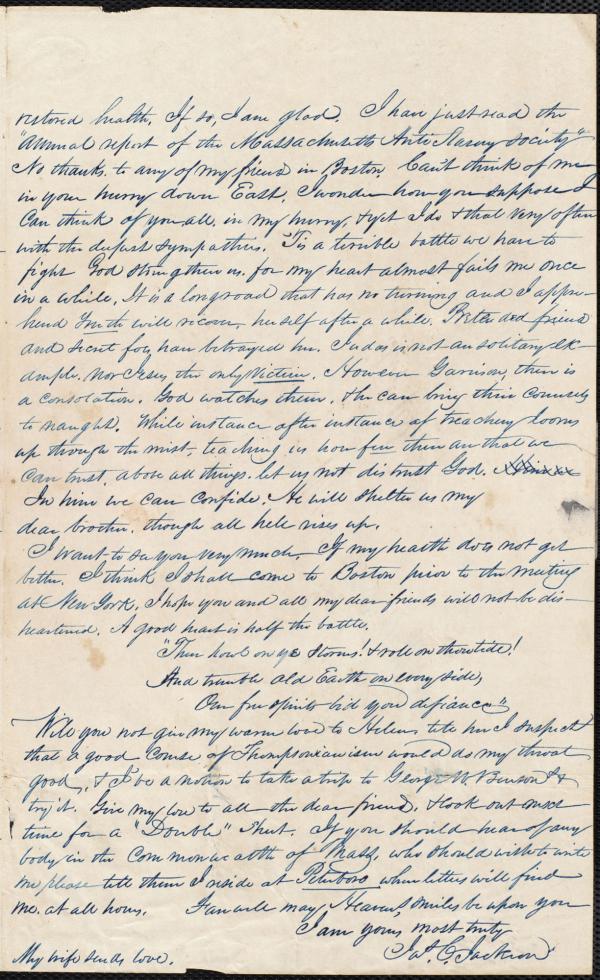 restored health. If so, I am glad. I have just read the
"annual report of the Massachusetts Anti Slavery Society"
No thanks. to any of my friend in Boston. Can't think of me
in your hurry down East. I wonder how you suppose I
can think of you all. in my hurry, & yet I do & that very often
with the deepest sympathies. 'Tis a terrible battle we have to
fight God strengthen us. for my heart almost fails me once
in a while. It is a long road that has no turning and I appre-
hend Truth will recover herself after a while. Pretended friend
and secret foes have betrayed her. Judas is not an solitary ex-
ample. nor Jesus the only Victim. However Garrison, there is
a consolation. God watches them. & he can bring their counsels
to naught. While instance after instance of treachery looms
up through the mist, teaching us how few there are that we
can trust, above all things. let us not distrust God.
In him we can confide. He will shelter us my
dear brother. though all hell rises up.
I want to see you very much. If my health does not get
better. I think I shall come to Boston prior to the meeting
at New York. I hope you and all my dear friends will not be dis-
heartened. A good heart is half the battle.
"Then howl on ye storms! & roll on thou tide!
And tremble old Earth on every side,
Our free spirits bid you defiance"
Will you not give my warm love to Helen, tell her I suspect
that a good course of Thompsonianism would do my throat
good, & I've a notion to take a trip to George W. Benson's &
try it. Give my love to all the dear friend. & look out next
time for a "Double" Sheet. If you should hear of any
body in the Commonwealth of Mass, who should wish to write
me please tell them I reside at Peterboro where letters will find
me. at all hours. Farewell may Heaven's smiles be upon you
I am yours most truly
Jas. C. Jackson
My wife sends love.